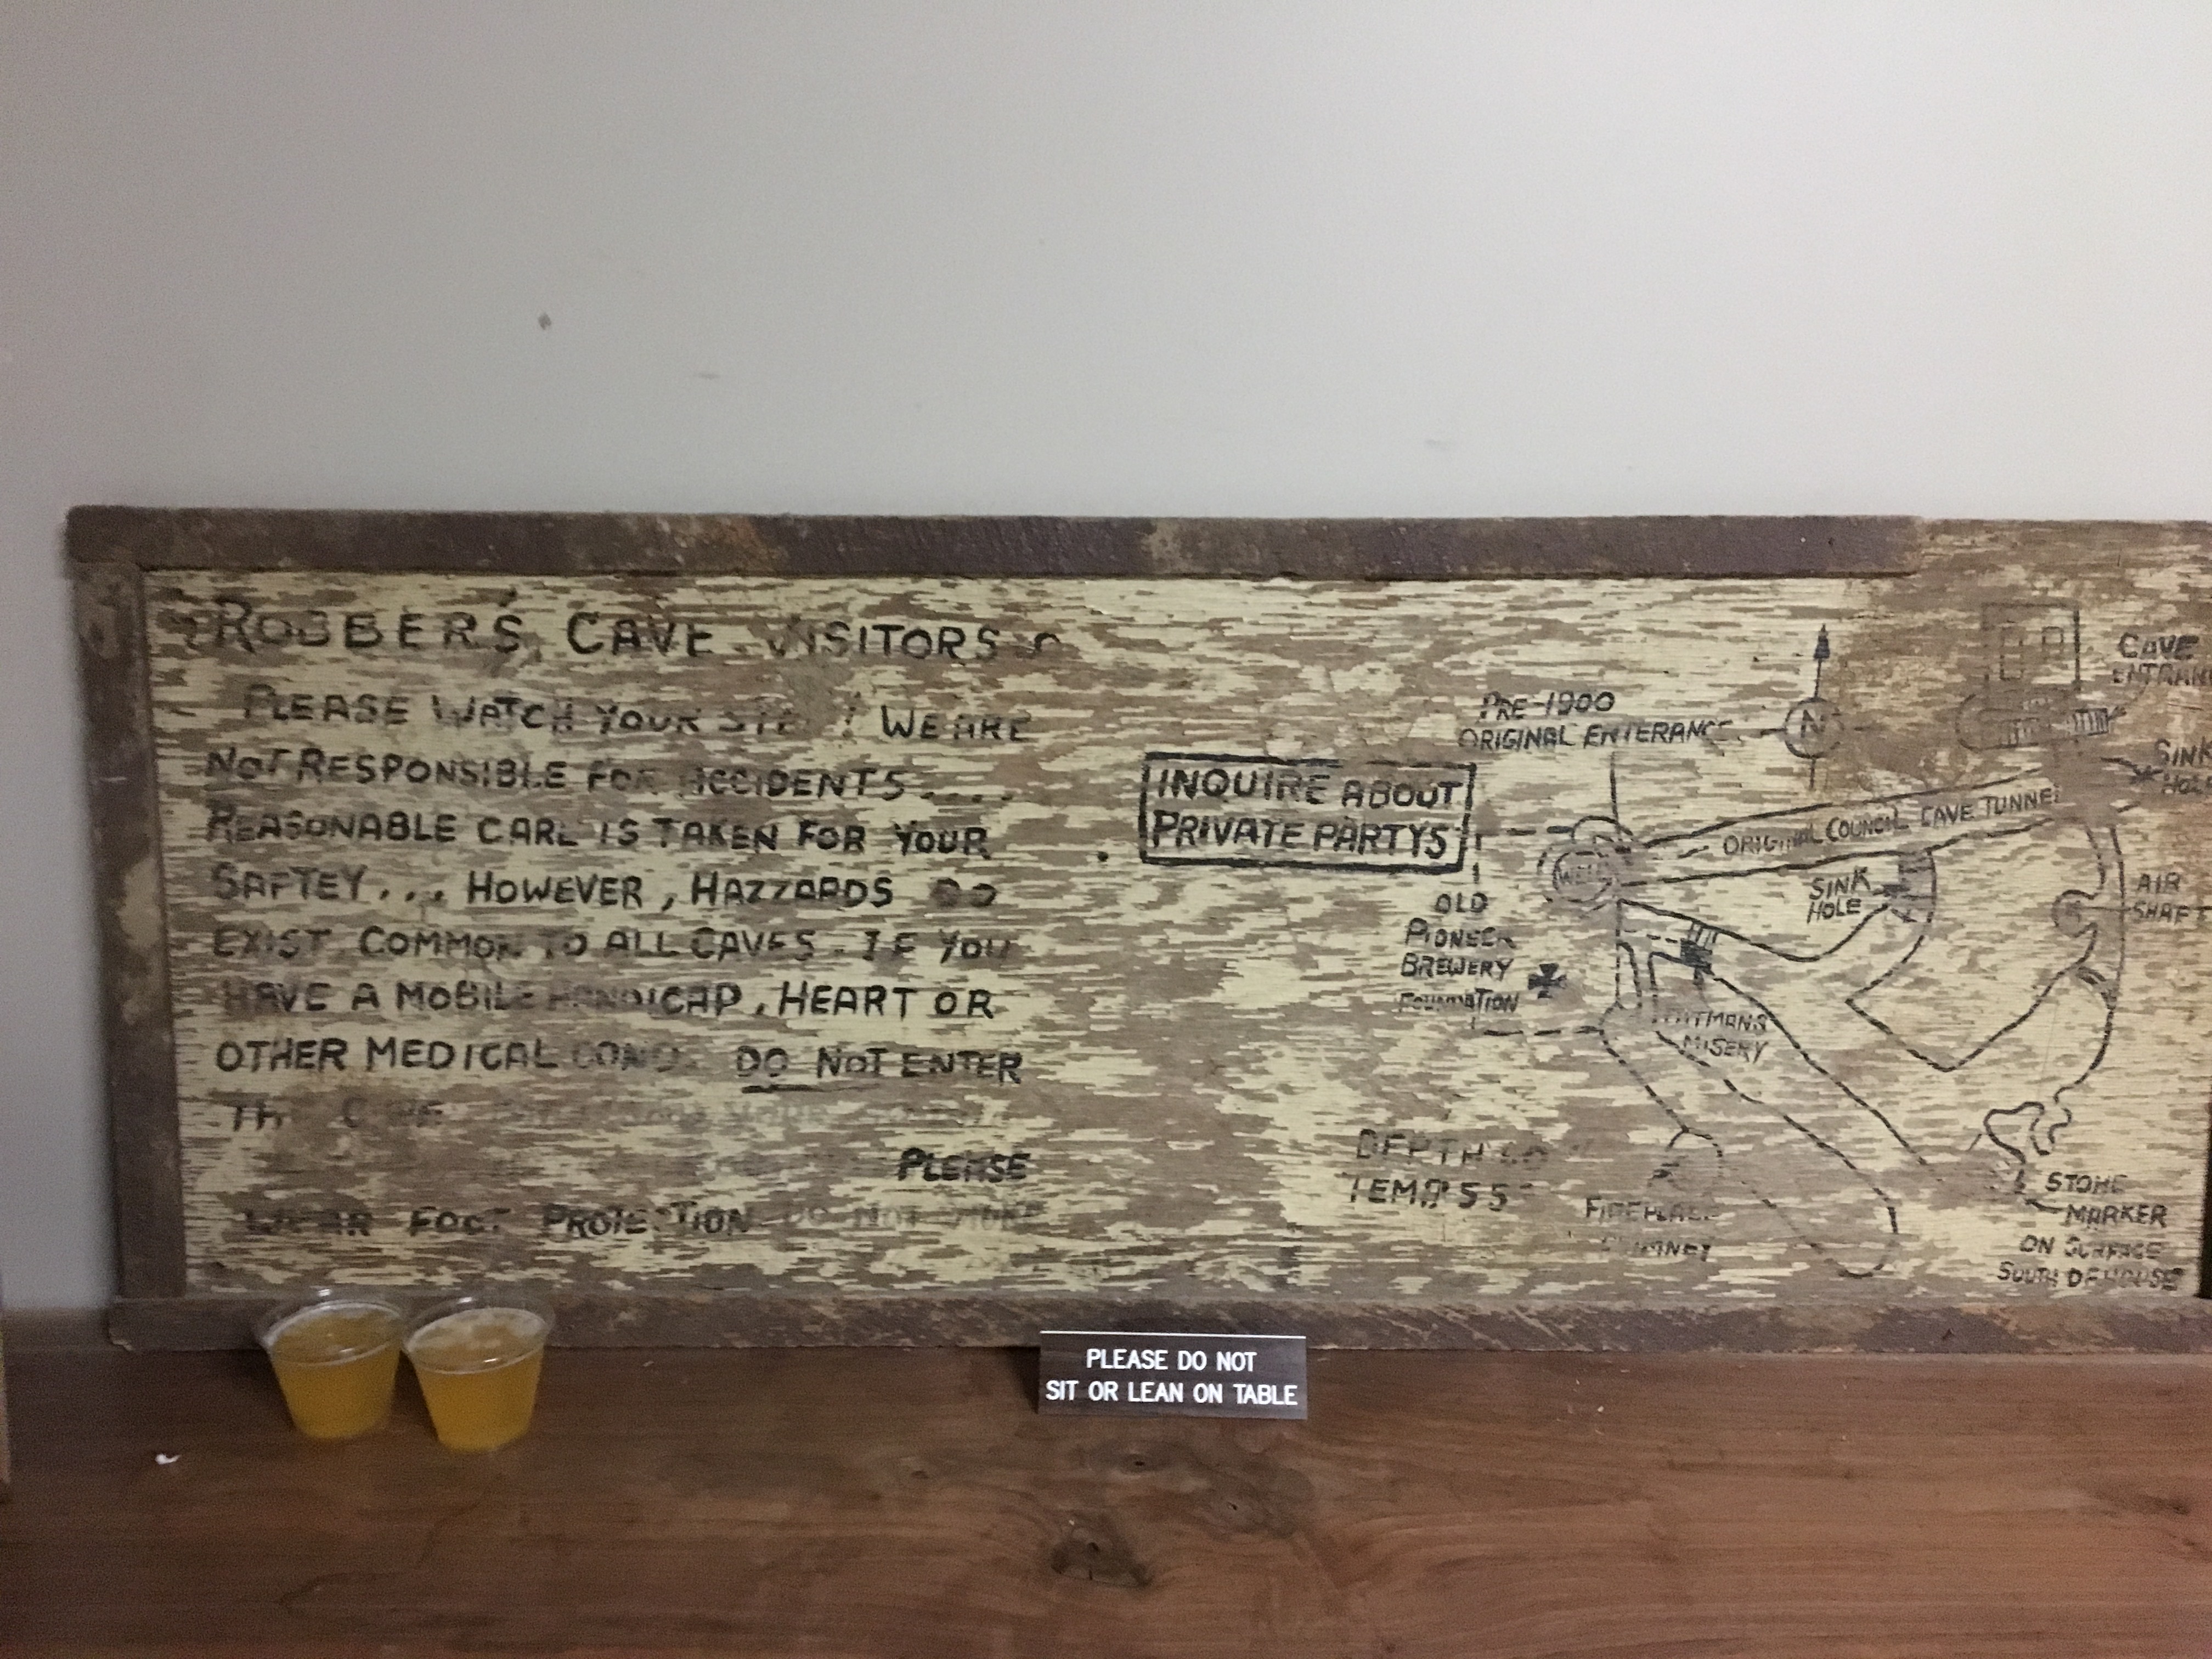 ROBBER'S CAVE VISITORS
PLEASE WATCH YOUR ! WE ARE
NOT RESPONSIBLE FOR ACCIDENTS....
REASONABLE CARE IS TAKEN FOR YOUR
SAFTEY... HOWEVER, HAZZARDS DO
EXIST COMMON TO ALL CAVES. IF YOU
HAVE A MOBILE HANDICAP, HEART OR
OTHER MEDICAL COND. DO NOT ENTER
PLEASE
WEAR FOOT PROTECTION DO NOT
INQUIRE ABOUT
PRIVATE PARTYS
PRE-1900
ORIGINAL ENTERANCE
N
CAVE
SINK
ORIGINAL COUNCIL CAVE TUNNEL
WELL
SINK
HOLE
AIR
SHAFT
OLD
PIONEER
BREWERY
FOUNDATION
MISERY
DEPTH
TEMP 55
FIREPLACE
CHIMNEY
STONE
MARKER
ON SURFACE
SOUTH OF HOUSE
PLEASE DO NOT
SIT OR LEAN ON TABLE